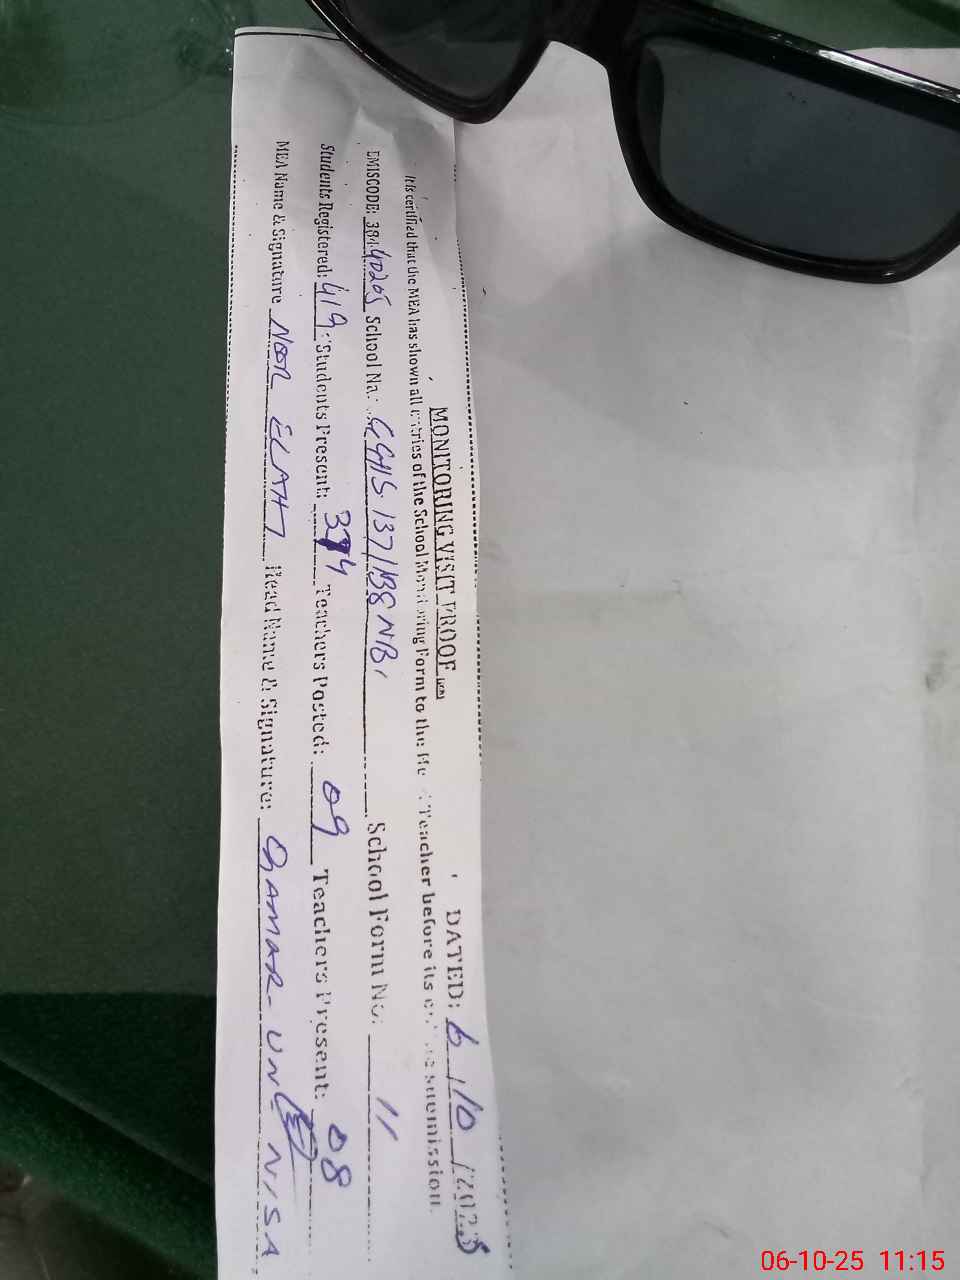 MONITORING VISIT PROOF DATED: 6/10/2025
It is certified that the MEA has shown all entries of the School Monitoring Form to the He Teacher before its submission.
EMISCODE: 38440205 School Na: GGHS 137/NB School Form No: 11
Students Registered: 419 Students Present: 374 Teachers Posted: 09 Teachers Present: 08
MEA Name & Signature NOOR ELAHI Head Name & Signature: QAMAR-UN-NISA
06-10-25 11:15